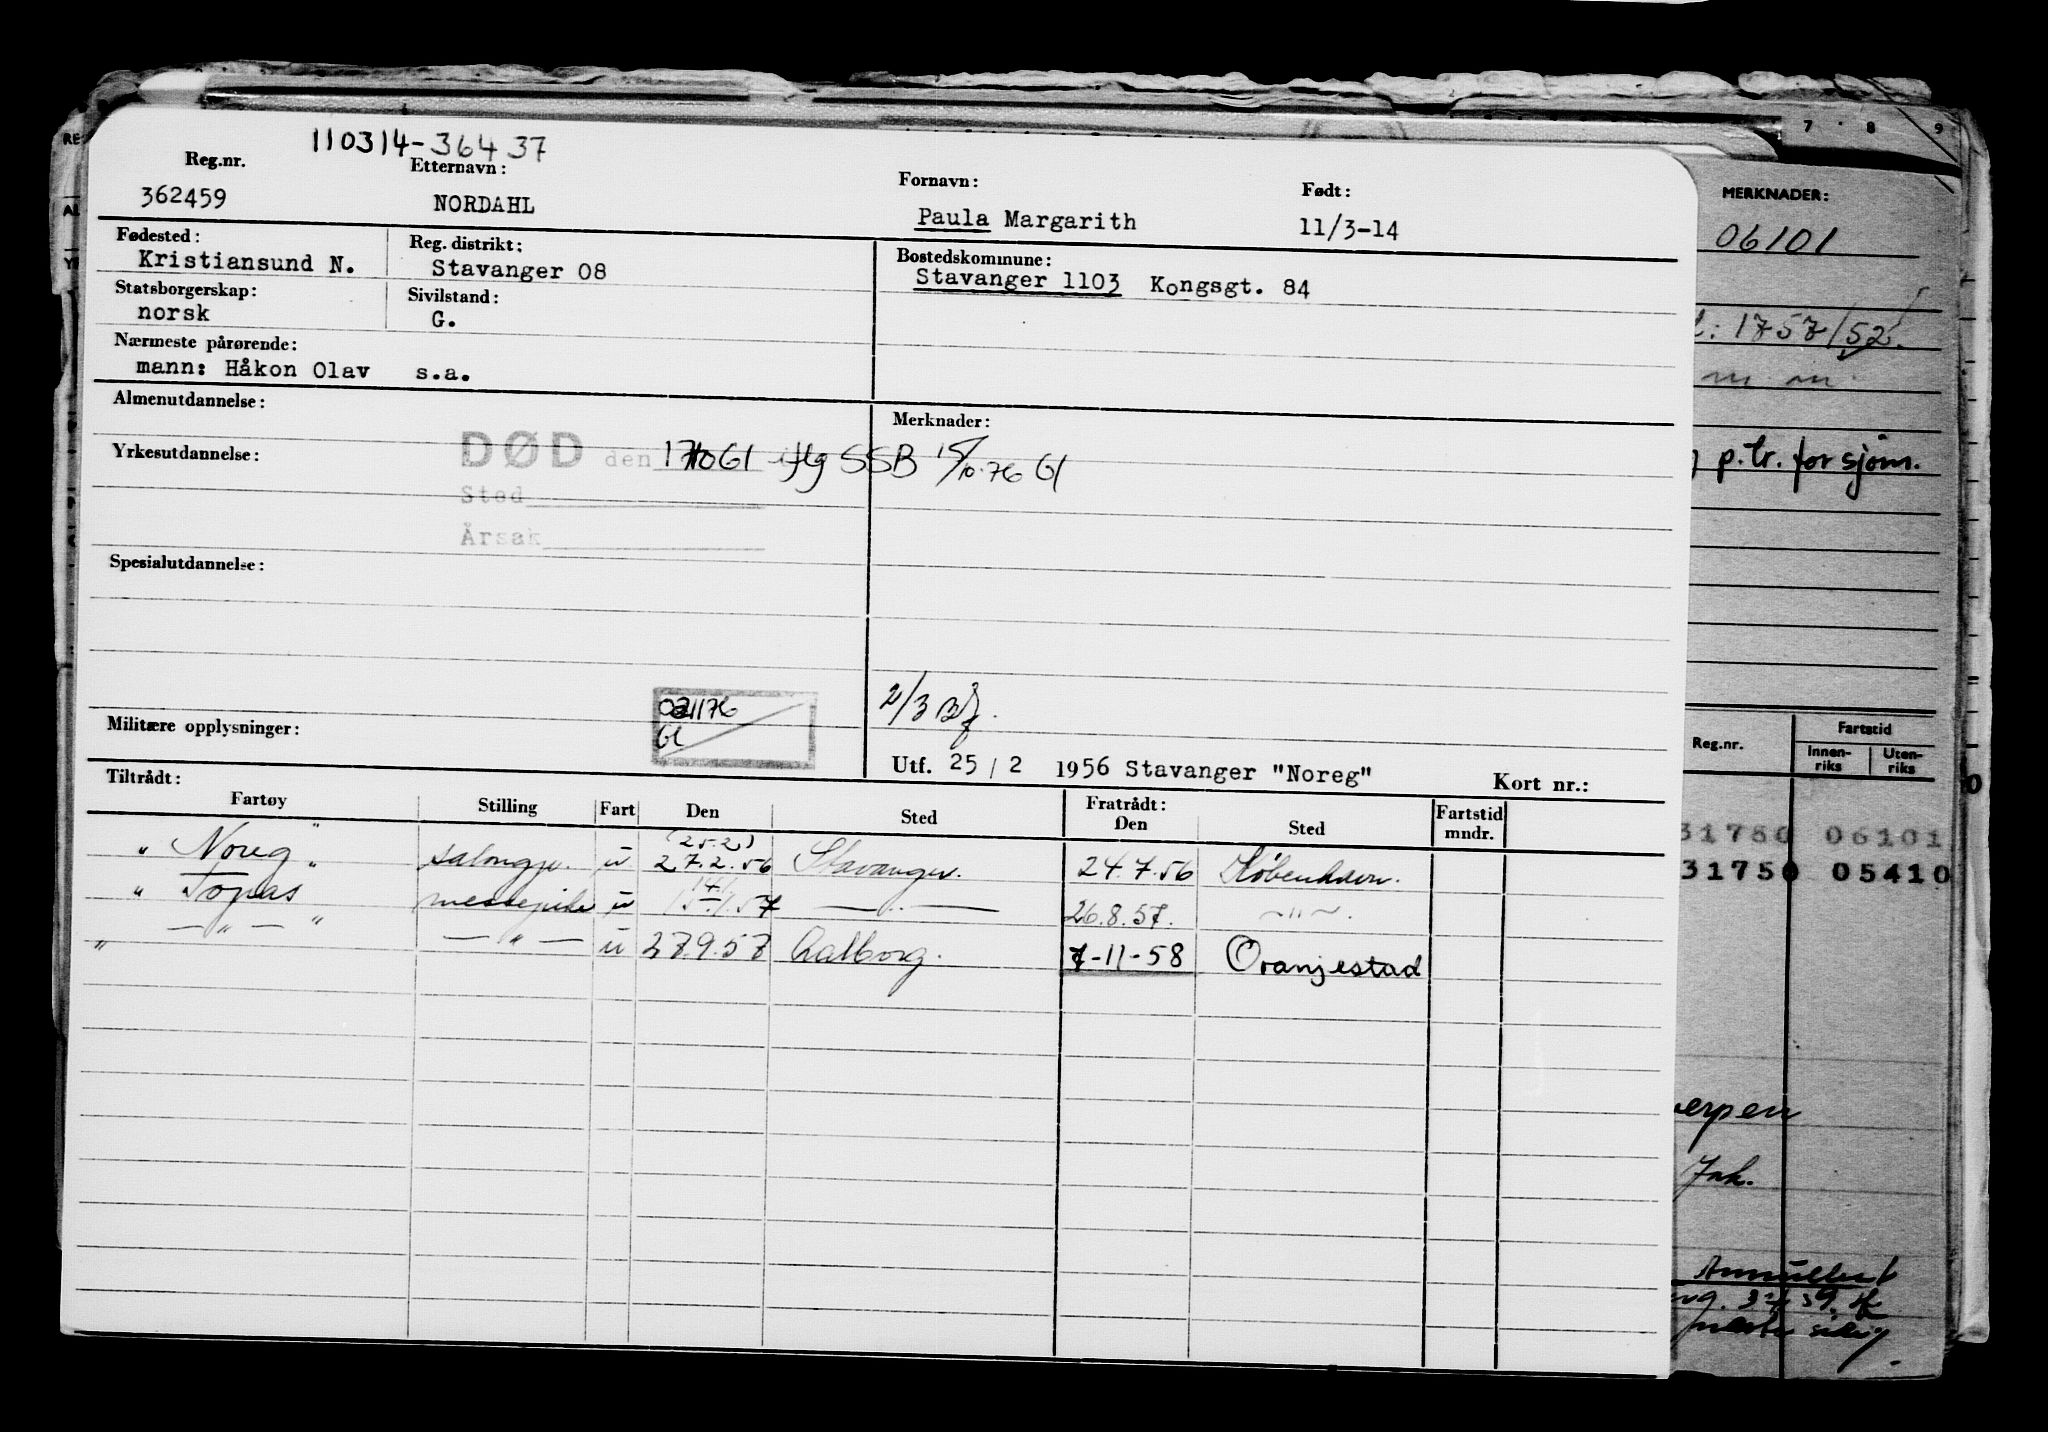 110314-36437
Reg.nr. Etternavn: Fornavn: Født:
362459 NORDAHL Paula Margarith 11/3-14
Fødested: Reg. distrikt: Bostedskommune:
Kristiansund N. Stavanger 08 Stavanger 1103 Kongsgt. 84
Statsborgerskap: Sivilstand:
norsk G.
Nærmeste pårørende:
mann: Håkon Olav s.a.
Almenutdannelse: Merknader:
Yrkesutdannelse: DØD den 171061 iflg SSB 15/10-76 Gl
Sted
Årsak
Spesialutdannelse:
021176
Gl
2/3 Bf.
Militære opplysninger:
Utf. 25/2 1956 Stavanger "Noreg" Kort nr.:
Tiltrådt: Fratrådt:
Fartøy Stilling Fart Den Sted Den Sted Fartstid mndr.
(25.2)
" Noreg " salongpr. u 27.2.56 Stavanger. 24.7.56 København.
14/
" Topas " messepike u 15.1.57 — " — 26.8.57. — " —.
" — " — " — " — u 27.9.57 Aalborg. 7-11-58 Oranjestad
7 8 9
MERKNADER:
06101
1757/52.
p.tr. for sjøm.
Reg.nr. Fartstid
Innen-riks Uten-riks
31750 06101
31750 05410
Annullert